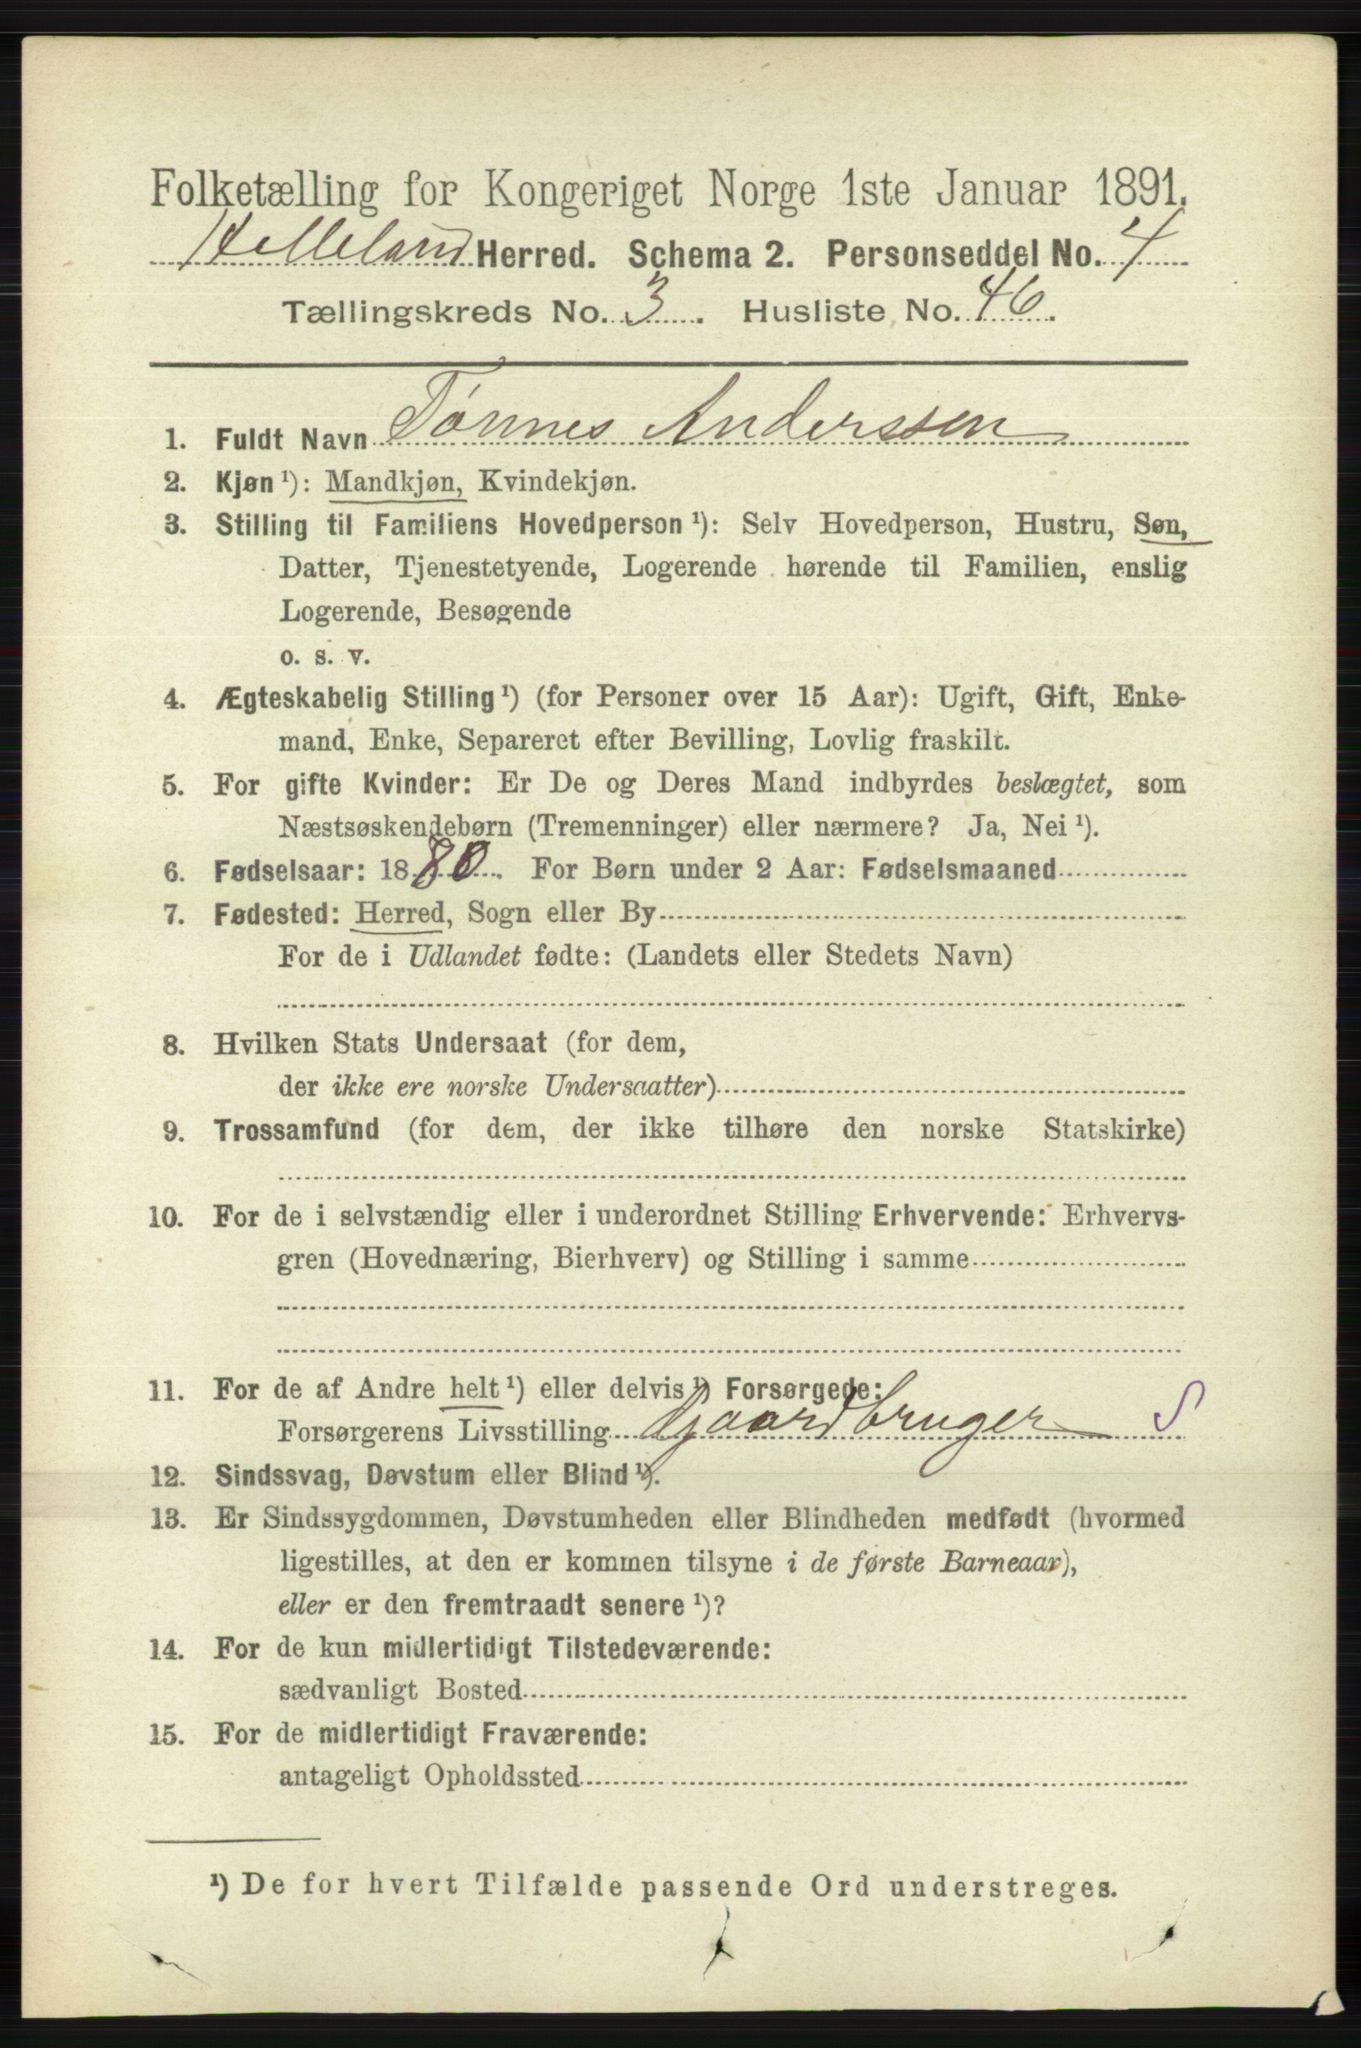 Folketælling for Kongeriget Norge 1ste Januar 1891.
Helleland Herred. Schema 2. Personseddel No. 4
Tællingskreds No. 3. Husliste No. 46.
1. Fuldt Navn Tønnes Anderssen
2. Kjøn ¹): Mandkjøn, Kvindekjøn.
3. Stilling til Familiens Hovedperson ¹): Selv Hovedperson, Hustru, Søn,
Datter, Tjenestetyende, Logerende hørende til Familien, enslig
Logerende, Besøgende
o. s. v.
4. Ægteskabelig Stilling ¹) (for Personer over 15 Aar): Ugift, Gift, Enke-
mand, Enke, Separeret efter Bevilling, Lovlig fraskilt.
5. For gifte Kvinder: Er De og Deres Mand indbyrdes beslægtet, som
Næstsøskendebørn (Tremenninger) eller nærmere? Ja, Nei ¹).
6. Fødselsaar: 1880. For Børn under 2 Aar: Fødselsmaaned
7. Fødested: Herred, Sogn eller By
For de i Udlandet fødte: (Landets eller Stedets Navn)
8. Hvilken Stats Undersaat (for dem,
der ikke ere norske Undersaatter)
9. Trossamfund (for dem, der ikke tilhøre den norske Statskirke)
10. For de i selvstændig eller i underordnet Stilling Erhvervende: Erhvervs-
gren (Hovednæring, Bierhverv) og Stilling i samme
11. For de af Andre helt ¹) eller delvis ¹) Forsørgede:
Forsørgerens Livsstilling Gaardbruger S
12. Sindssvag, Døvstum eller Blind ¹).
13. Er Sindssygdommen, Døvstumheden eller Blindheden medfødt (hvormed
ligestilles, at den er kommen tilsyne i de første Barneaar),
eller er den fremtraadt senere ¹)?
14. For de kun midlertidigt Tilstedeværende:
sædvanligt Bosted
15. For de midlertidigt Fraværende:
antageligt Opholdssted
¹) De for hvert Tilfælde passende Ord understreges.